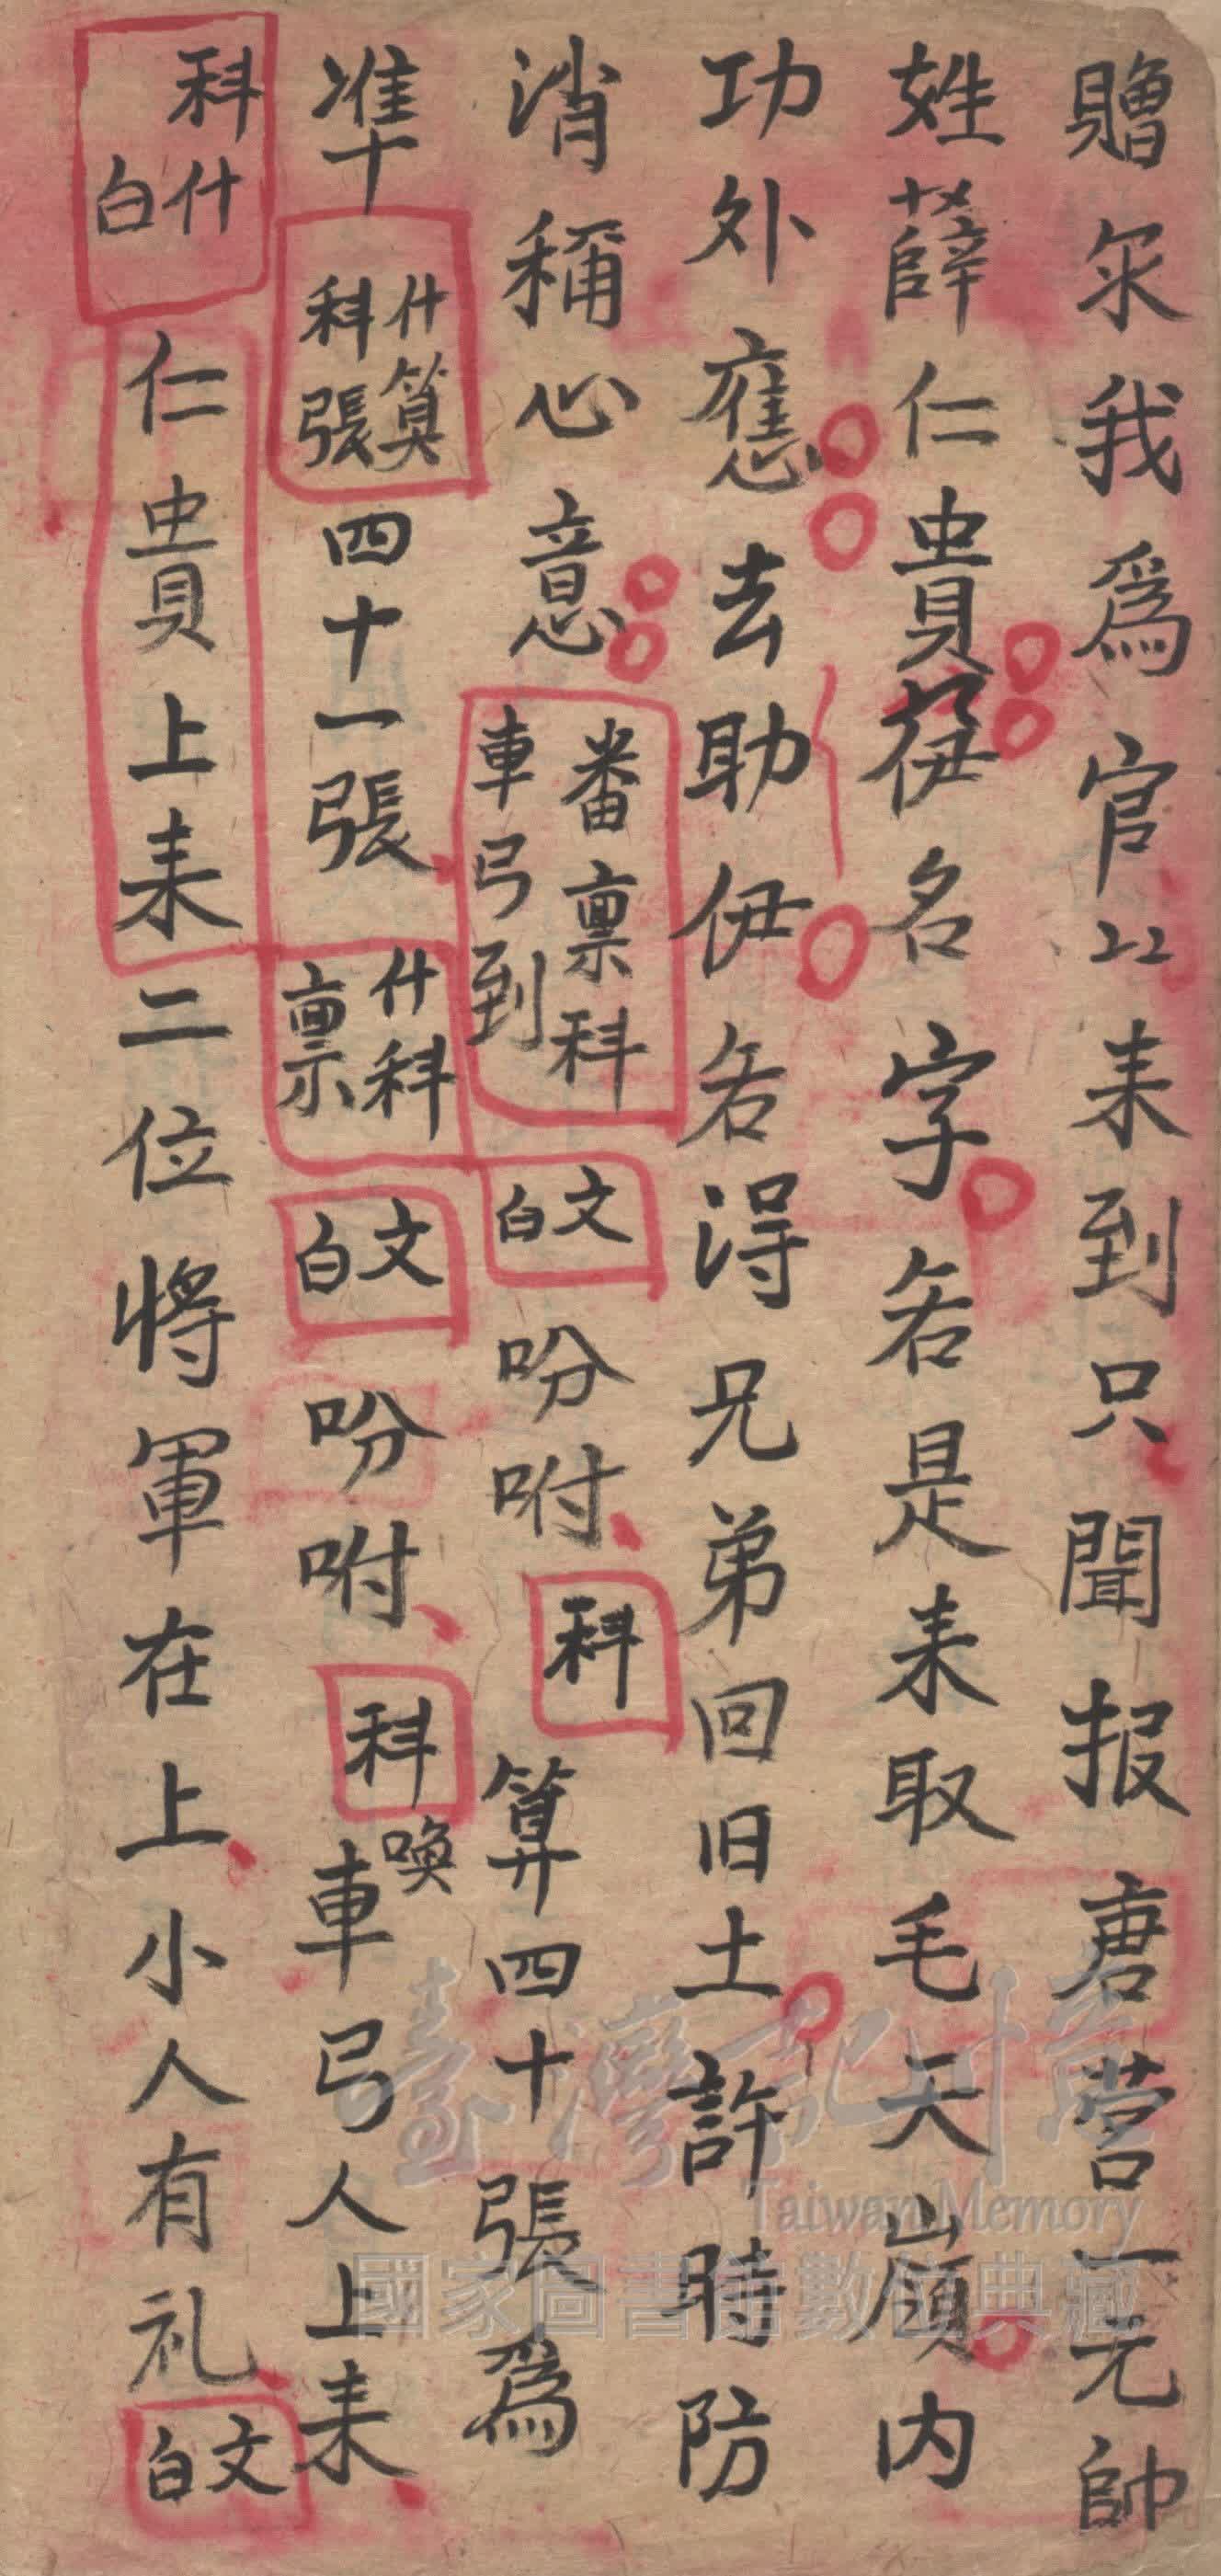 贈尔我為官〻耒到只聞报唐营一元帥
姓薛仁貴伊名字若是耒取毛天山嶺内
功外應去助伊若淂兄弟回旧土許時防
消稱心意番禀科車弓到文白吩咐科算四十張為
准什算科張四十一張什科禀文白吩咐科喚車弓人上耒
科什白仁貴上耒二位將軍在上小人有礼文白
臺灣記憶
Taiwan Memory
國家圖書館數位典藏